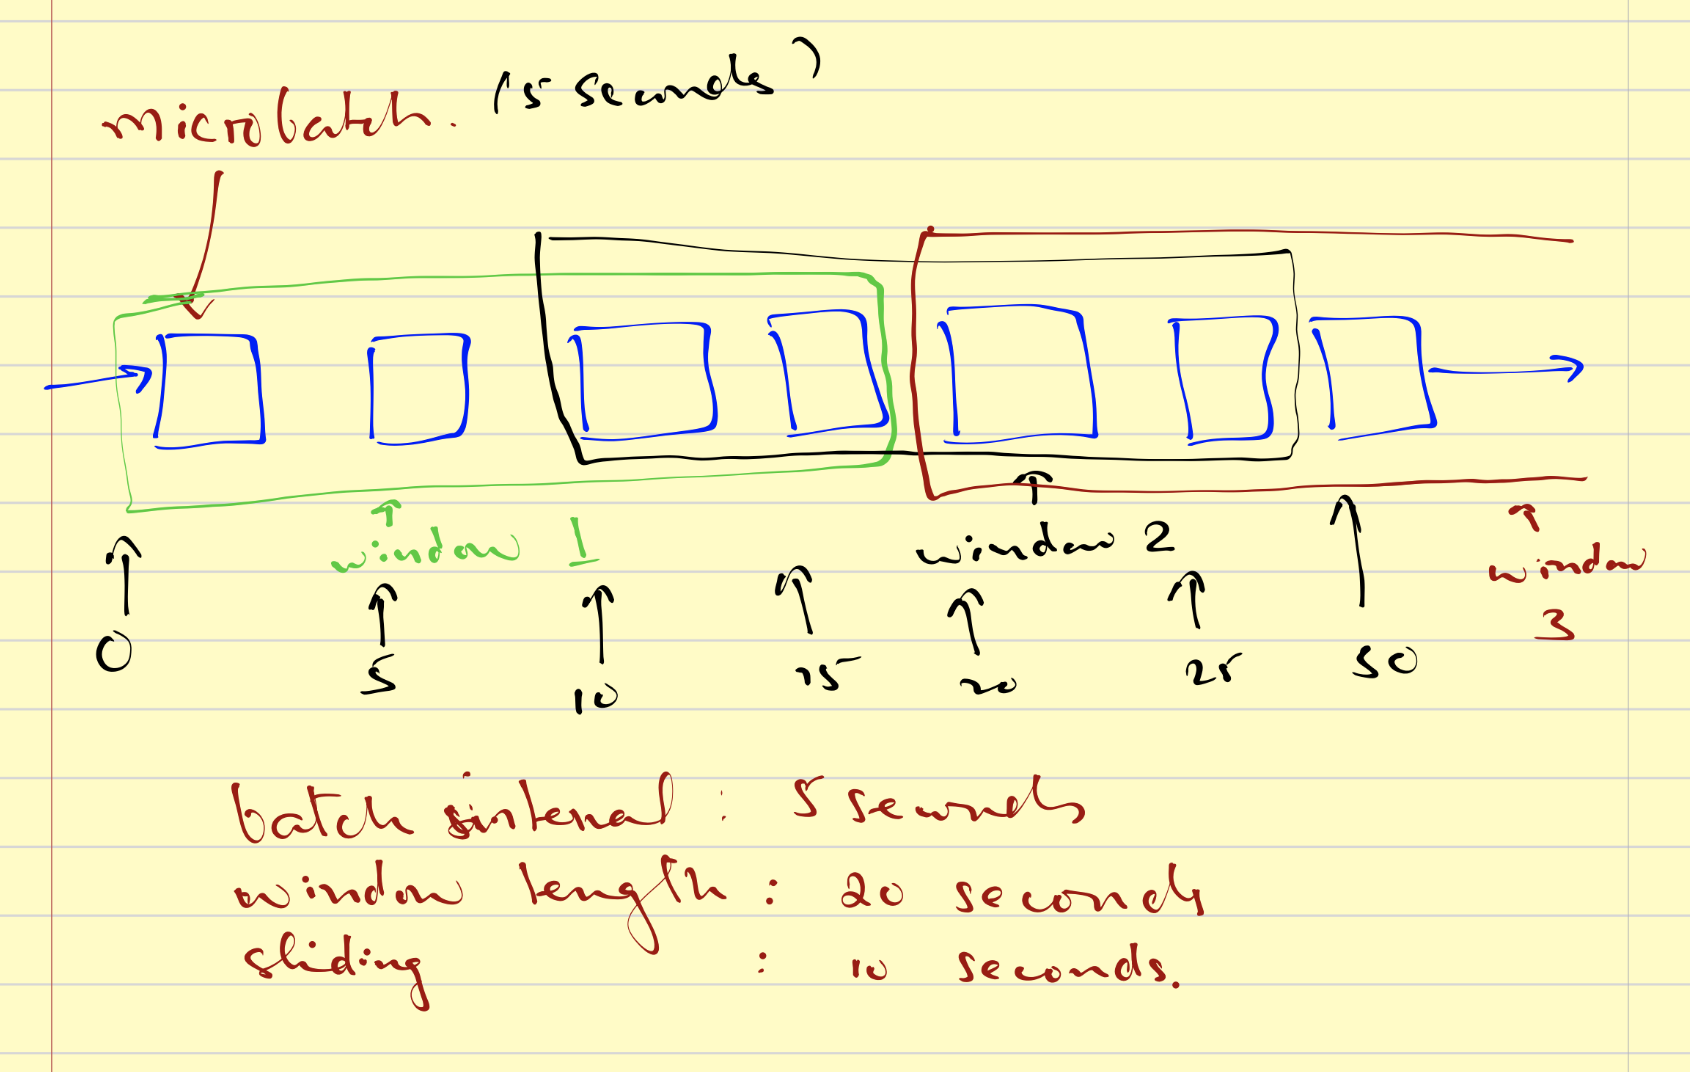 microbatch. (5 seconds)
window 1
window 2
window 3
0 5 10 15 20 25 30
batch interval : 5 seconds
window length : 20 seconds
sliding : 10 seconds.